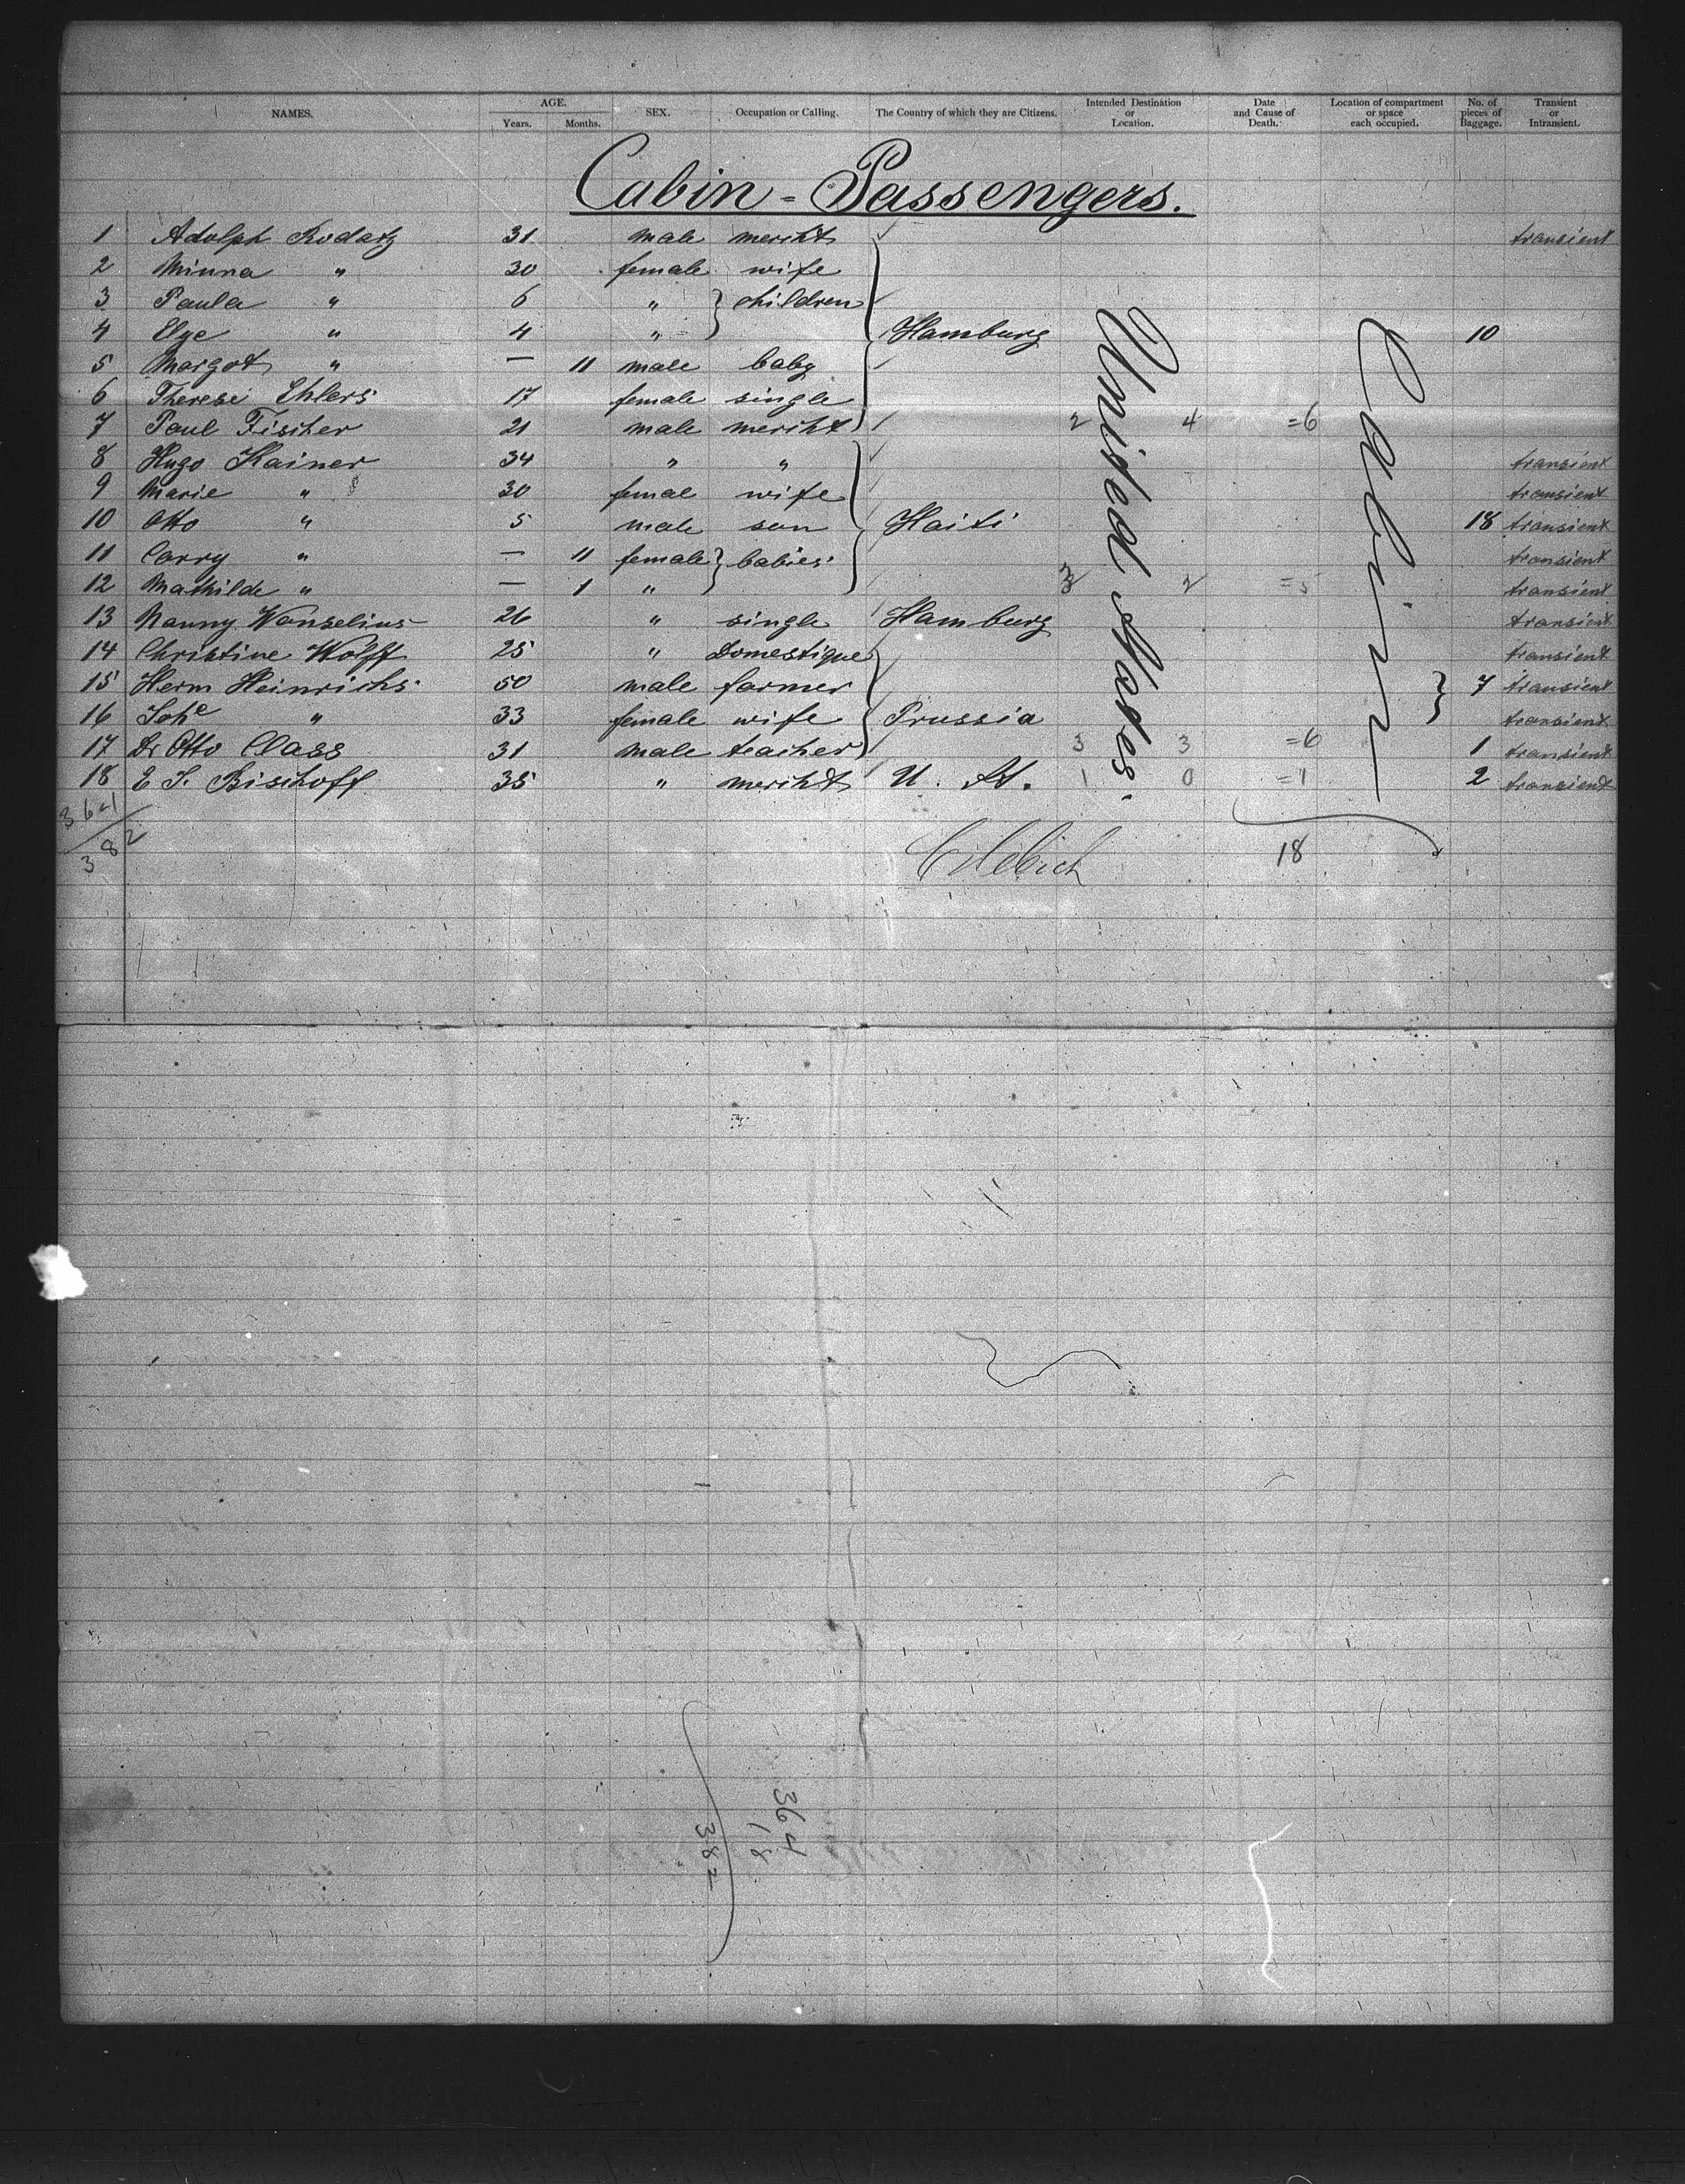 NAMES. AGE. Years. Months. SEX. Occupation or Calling. The Country of which they are Citizens. Intended Destination or Location. Date and Cause of Death. Location of compartment or space each occupied. No. of pieces of Baggage. Transient or Intransient.
Cabin-Passengers.
1 Adolph Rodatz 31 male mercht transient
2 Minna " 30 female wife
3 Paula " 6 " } children
4 Else " 4 " Hamburg 10
5 Margot " — 11 male baby
6 Therese Ehlers 17 female single
7 Paul Fischer 21 male mercht 2 4 =6
8 Hugo Kainer 34 " " transient
9 Marie " 30 femal wife transient
10 Otto " 5 male son Haiti 18 transient
11 Carry " — 11 female } babies transient
12 Mathilde " — 1 " 3 2 =5 transient
13 Nanny Wanselius 26 " single Hamburg transient
14 Christine Wolff 25 " Domestique transient
15 Herm Heinrichs 50 male farmer 7 transient
16 Johe " 33 female wife Prussia transient
17 Dr Otto Class 31 male teacher 3 3 =6 1 transient
18 E. S. Bischoff 35 " mercht U. St. 1 0 =1 2 transient
United States.
Cabin
364
18
382
18
364
18
382